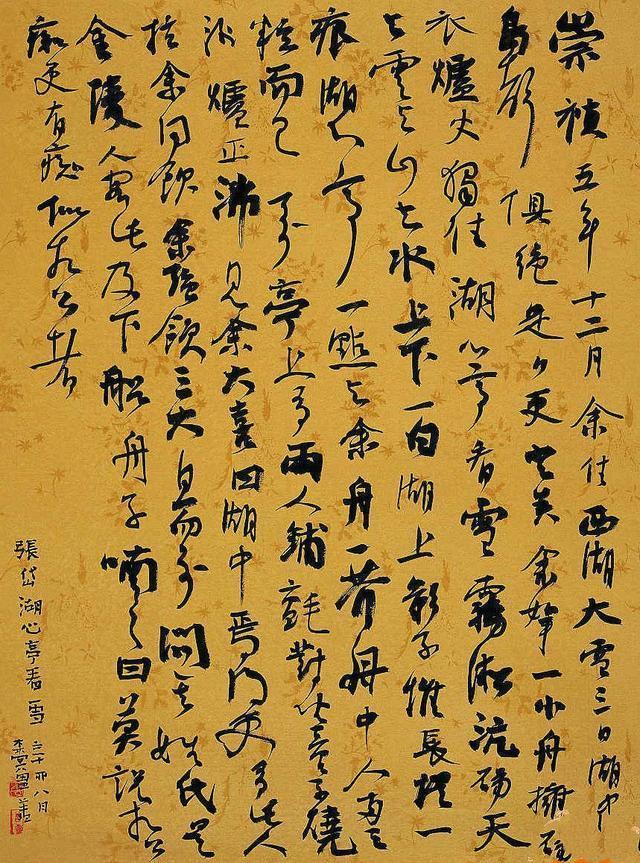 崇禎五年十二月余住西湖大雪三日湖中
鳥聲俱絕是日更定矣余拏一小舟擁毳
衣爐火獨往湖心亭看雪霧淞沆碭天
與雲與山與水上下一白湖上影子惟長堤一
痕湖心亭一點與余舟一芥舟中人兩三
粒而已到亭上有兩人鋪氈對坐童子燒
酒爐正沸見余大喜曰湖中焉得更有此人
拉余同飲余強飲三大白而別問其姓氏是
金陵人客此及下船舟子喃喃曰莫說相公
癡更有癡似相公者
張岱湖心亭看雪 八月